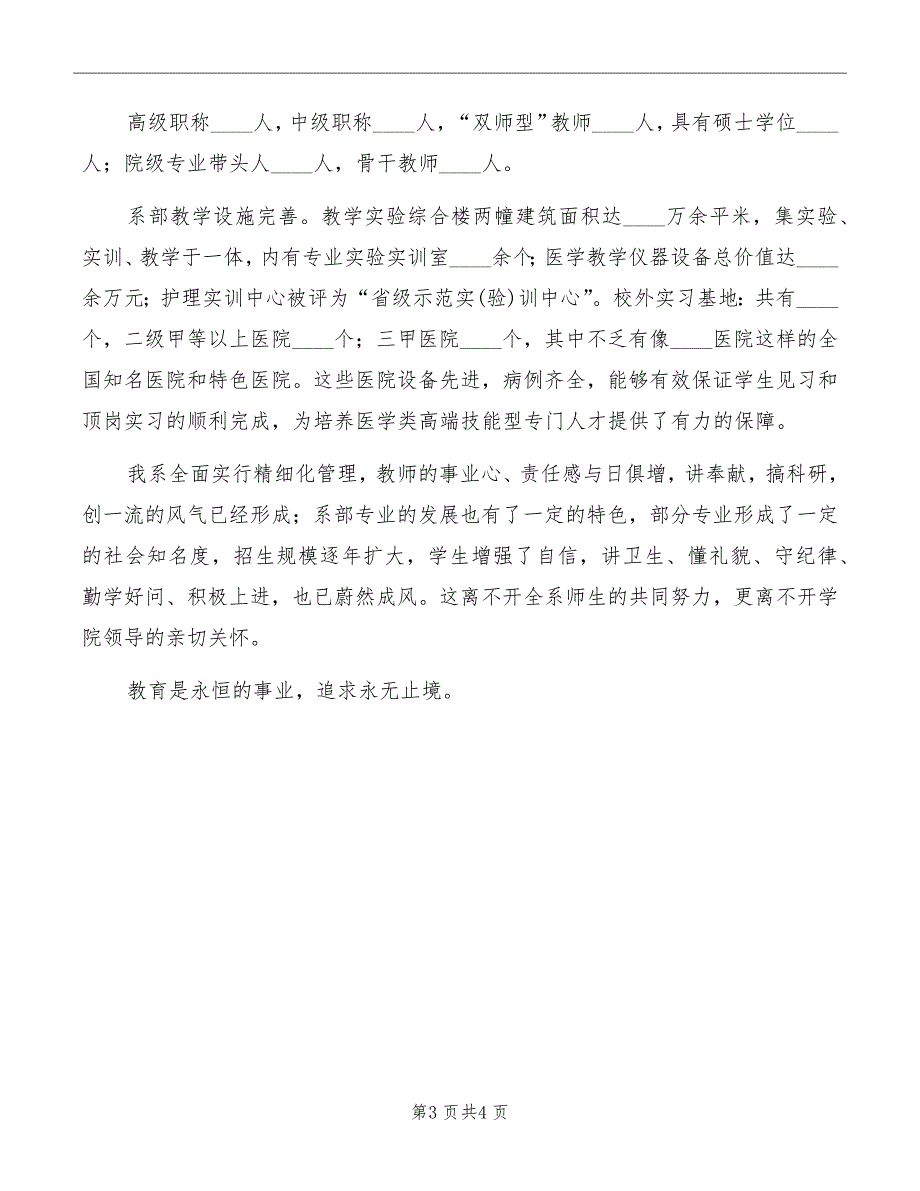 高级职称____人，中级职称____人，“双师型”教师____人，具有硕士学位____
人；院级专业带头人____人，骨干教师____人。
系部教学设施完善。教学实验综合楼两幢建筑面积达____万余平米，集实验、
实训、教学于一体，内有专业实验实训室____余个；医学教学仪器设备总价值达____
余万元；护理实训中心被评为“省级示范实(验)训中心”。校外实习基地：共有____
个，二级甲等以上医院____个；三甲医院____个，其中不乏有像____医院这样的全
国知名医院和特色医院。这些医院设备先进，病例齐全，能够有效保证学生见习和
顶岗实习的顺利完成，为培养医学类高端技能型专门人才提供了有力的保障。
我系全面实行精细化管理，教师的事业心、责任感与日俱增，讲奉献，搞科研，
创一流的风气已经形成；系部专业的发展也有了一定的特色，部分专业形成了一定
的社会知名度，招生规模逐年扩大，学生增强了自信，讲卫生、懂礼貌、守纪律、
勤学好问、积极上进，也已蔚然成风。这离不开全系师生的共同努力，更离不开学
院领导的亲切关怀。
教育是永恒的事业，追求永无止境。
第3 页共4 页